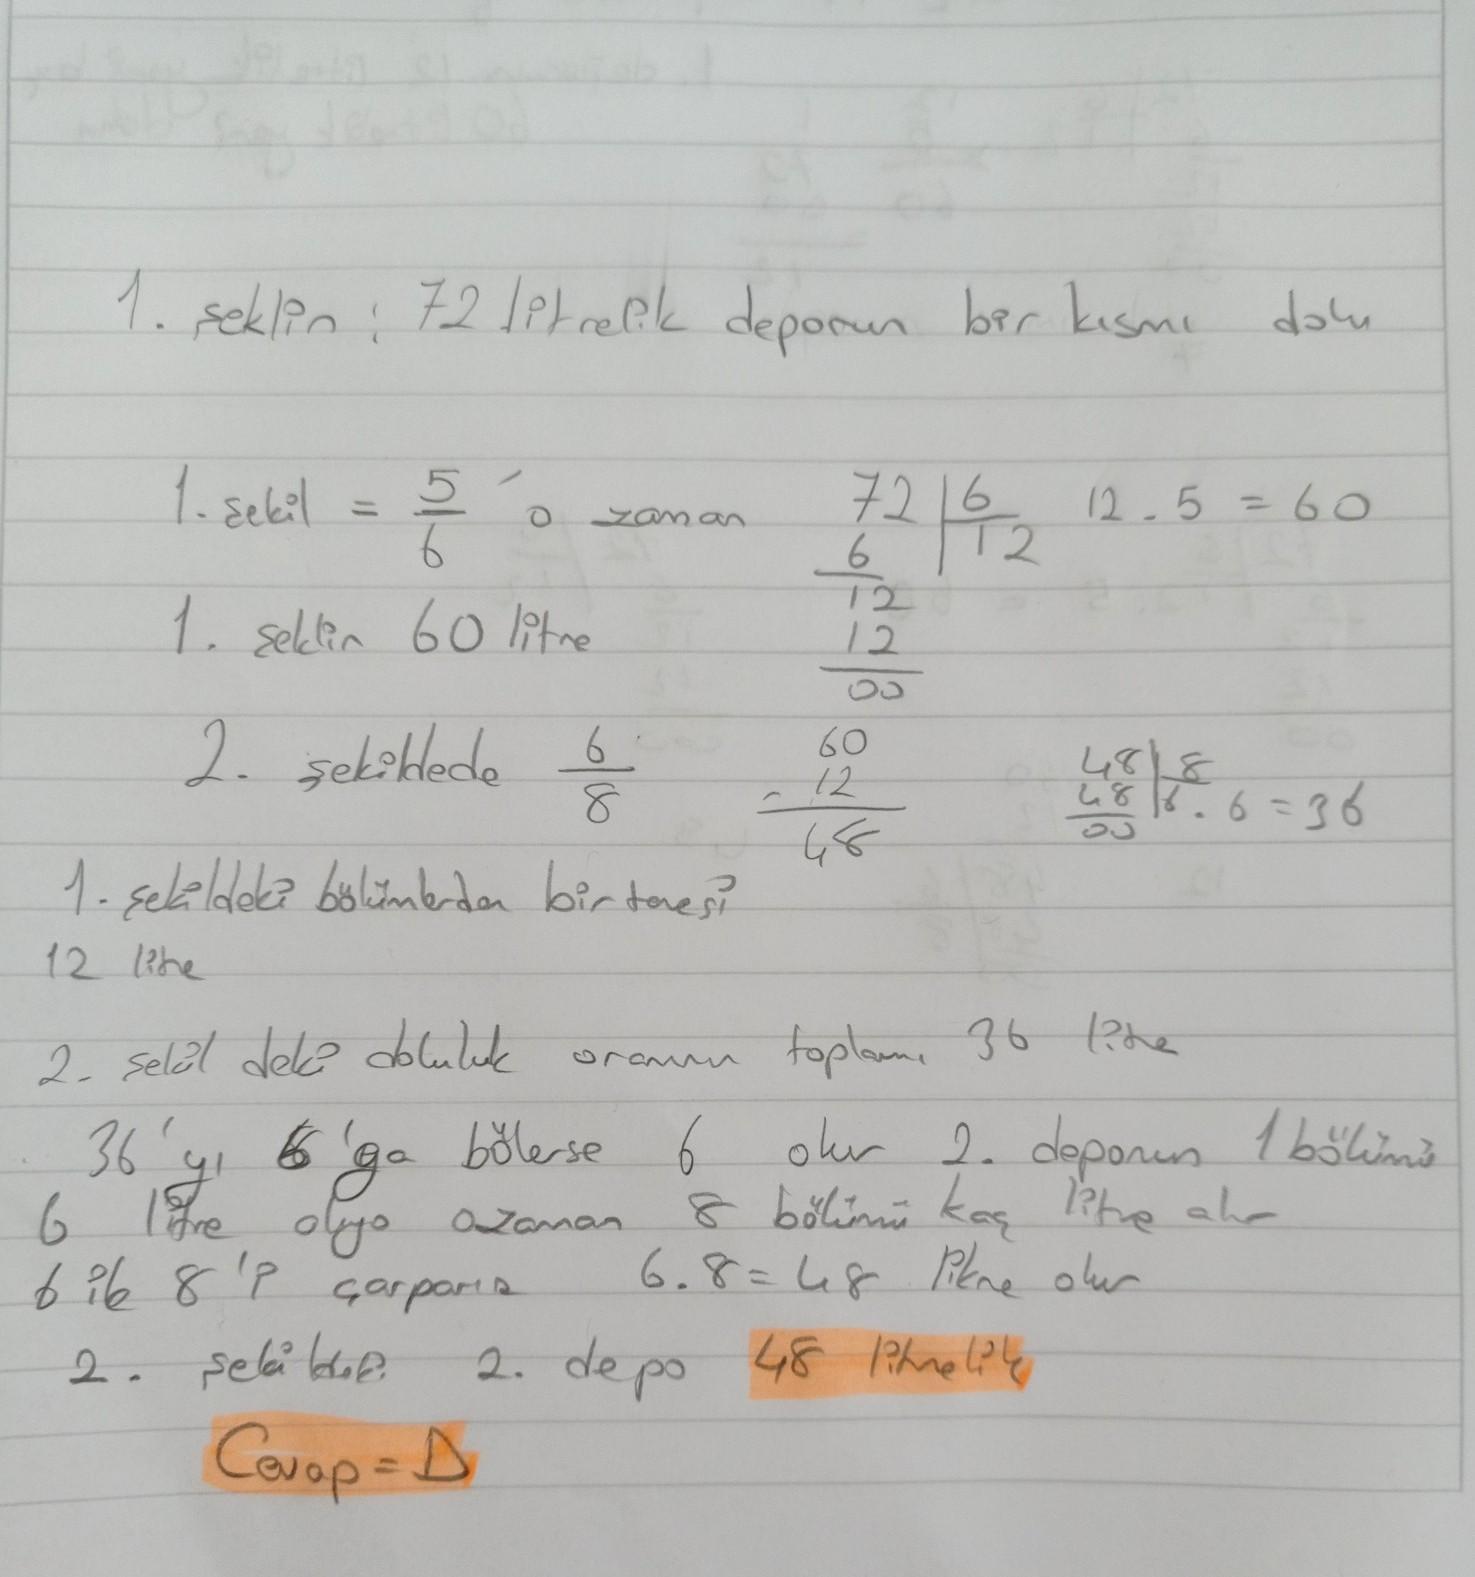 1. şeklin : 72 litrelik deponun bir kısmı dolu
1. şekil = 5/6 'o zaman 72 | 6 12 . 5 = 60
6 12
12
1. şeklin 60 litre 12
00
2. şekildede 6/8 60 48 | 8
- 12 48 6 . 6 = 36
48 00
1. şekildeki bölümlerden bir tanesi
12 litre
2. şekil deki doluluk oranının toplamı 36 litre
36'yı 6'ya bölerse 6 olur 2. deponun 1 bölümü
6 litre oluyo ozaman 8 bölümü kaç litre alır
6 ile 8'i çarparız 6.8 = 48 litre olur
2. 2. depo 48 litrelik
Cevap = D